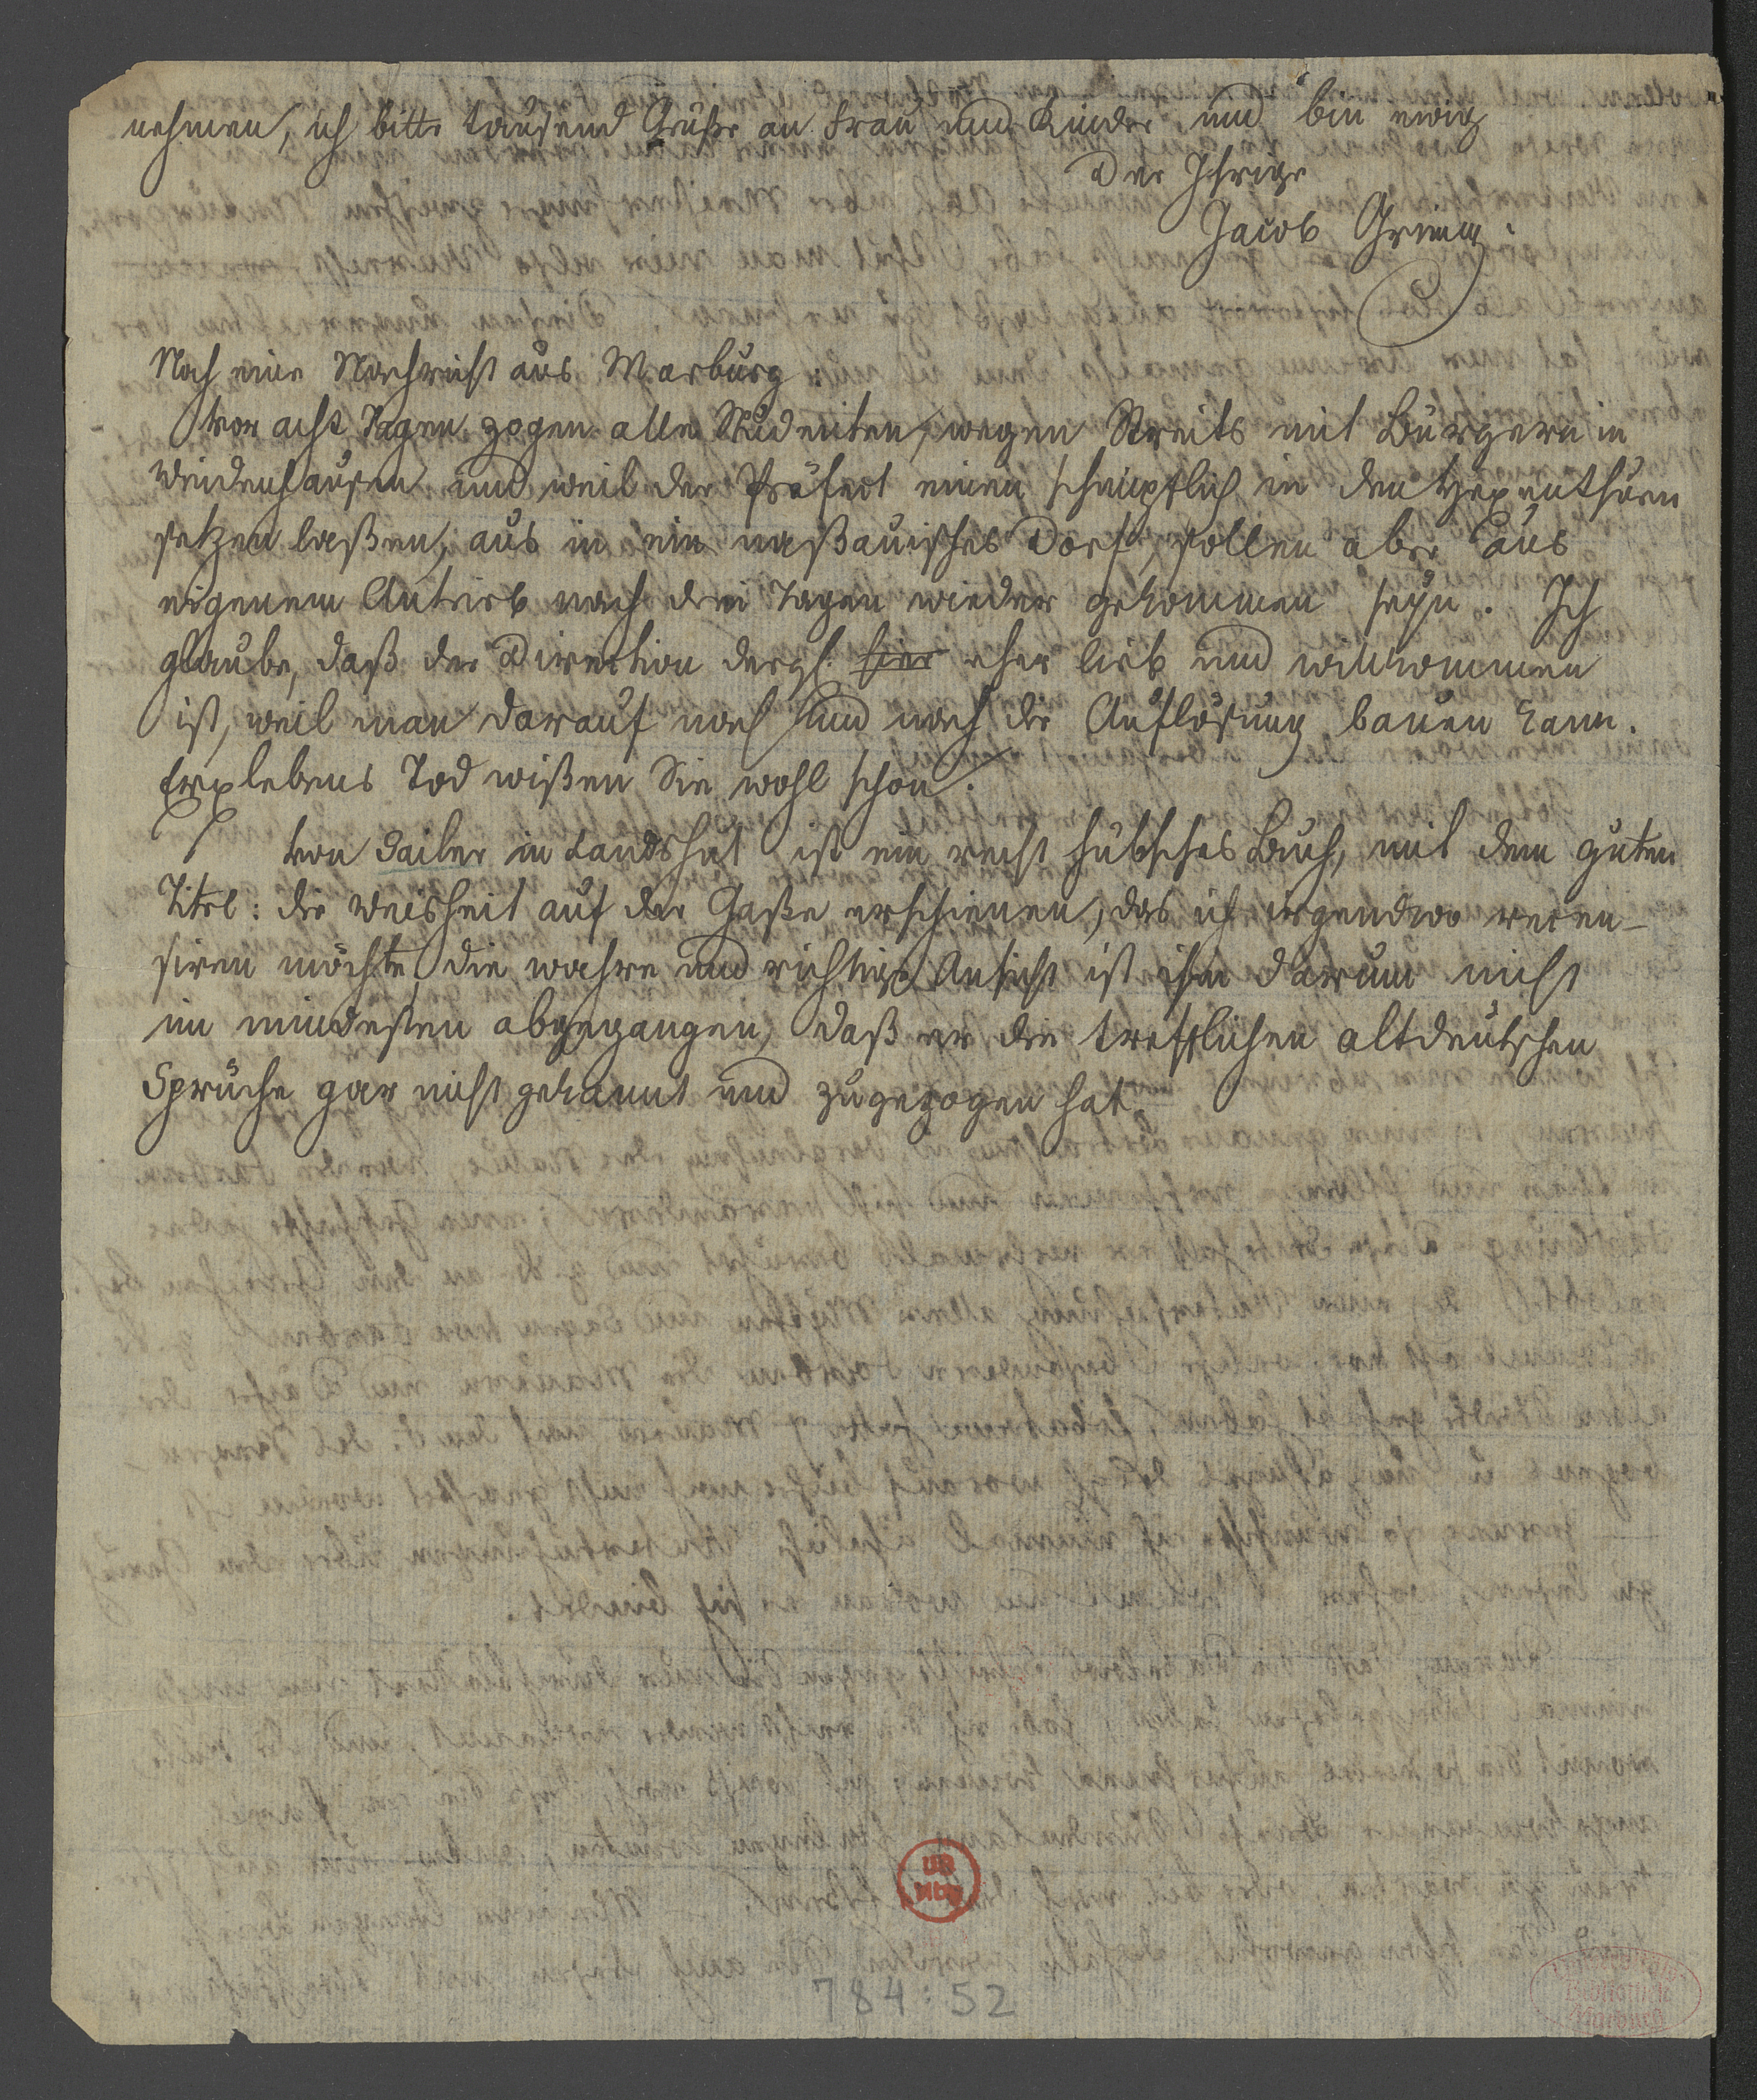 nehmen, ich bitte tausend Grüße an Frau und Kinder und bin ewig
Der Ihrige
Jacob Grimm.
Noch eine Nachricht aus Marburg
Vor acht Tagen zogen alle Studenten, wegen Streits mit Bürgern in
Weidenhausen und weil der Präfect einen schimpflich in den Hexenthurm
setzen laßen, aus in ein naßauisches Dorf, sollen aber aus
eigenem Antrieb nach drei Tagen wieder gekommen seyn. Ich
glaube, daß der Direction dergl. hier eher lieb und willkommen
ist, weil man darauf nach und nach die Auflösung bauen kann.
Erxlebens Tod wißen Sie wohl schon.
Von Sailer in Landshut ist ein recht hübsches Buch, mit dem guten
Titel: die Weisheit auf der Gaße erschienen, das ich irgendwo recen-
siren möchte, die wahre und richtige Ansicht ist ihm darum nicht
im mindesten abgegangen, daß er die trefflichen altdeutschen
Sprüche gar nicht gekannt und zugezogen hat.
784:52
UB
Bibliothek
Marburg